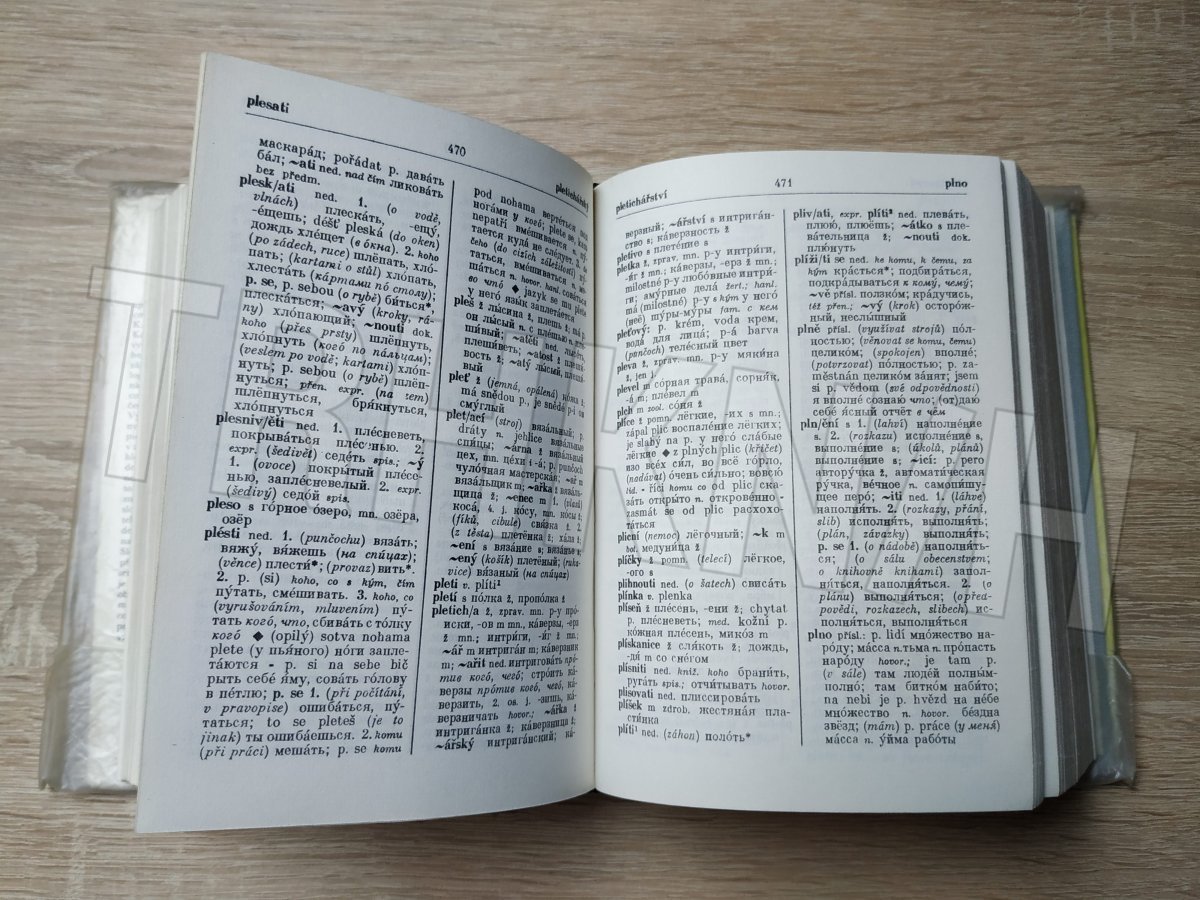 plesati
470
pletichářský
маскара́д; pořádat p. дава́ть
ба́л; ~ati ned. nad čím ликова́ть
bez předm.
plesk/ati ned. 1. (o vodě,
vlnách) плеска́ть, -ещу́,
-е́щешь; déšť pleská (do oken)
дождь хле́щет (в о́кна). 2. koho
(po zádech, ruce) шлёпать, хло́-
пать; (kartami o stůl) хло́пать,
хлеста́ть (ка́ртами по́ столу);
p. se, p. sebou (o rybě) би́ться*,
плеска́ться; ~avý (kroky, rá-
ny) хло́пающий; ~nouti dok.
koho (přes prsty) шлёпнуть,
хло́пнуть (кого́ по па́льцам);
(veslem po vodě; kartami) хло́п-
нуть; p. sebou (o rybě) шлёп-
нуться; přen. expr. (na tem)
шлёпнуться, бря́кнуться,
хло́пнуться
plesniv/ěti ned. 1. пле́сневеть,
покрыва́ться пле́сенью. 2.
expr. (šedivět) седе́ть spis.; ~ý
1. (ovoce) покры́тый пле́се-
нью, запле́сневелый. 2. expr.
(šedivý) седо́й spis.
pleso s го́рное о́зеро, mn. озёра,
озёр
plésti ned. 1. (punčochu) вяза́ть;
вяжу́, вя́жешь (на спи́цах);
(věnce) плести́*; (provaz) вить*.
2. p. (si) koho, co s kým, čím
пу́тать, сме́шивать. 3. koho, co
(vyrušováním, mluvením) пу́-
тать кого́, что, сбива́ть с то́лку
кого́ ◆ (opilý) sotva nohama
plete (у пья́ного) но́ги запле-
та́ются - p. si na sebe bič
рыть себе́ я́му, сова́ть го́лову
в пе́тлю; p. se 1. (při počítání,
v pravopise) ошиба́ться, пу́-
таться; to se pleteš (je to
jinak) ты ошиба́ешься. 2. komu
(při práci) меша́ть; p. se komu
pod nohama верте́ться под
нога́ми у кого́; plete se, kam
nepatří вме́шивается n. су-
тается куда́ не сле́дует. 3. do
čeho (do cizích záležitostí) пу́-
таться, вме́шиваться n. ме-
ша́ться n. hovor. hanl. сова́ться
во что́ ◆ jazyk se mu plete
у него́ язы́к заплета́ется
pleš ž лы́сина ž, плешь ž; má p.
он лы́сый n. с пле́шью n. пле-
ши́вый; ~atěti ned. лысе́ть,
плеши́веть; ~atost ž плеши́-
вость ž; ~atý лы́сый, плеши́-
вый
pleť ž (jemná, opálená) ко́жа ž;
má snědou p., je snědé p-i он
сму́глый
plet/ací (stroj) вяза́льный; p.
dráty n. jehlice вяза́льные
спи́цы; ~árna ž вяза́льный
цех, mn. це́хи i -á; p. punčoch
чуло́чная мастерска́я; ~ář m
вяза́льщик m; ~ařka ž вяза́ль-
щица ž; ~enec m 1. (vlasů)
коса́, 4. j. ко́су, mn. ко́сы ž;
(fíků, cibule) свя́зка ž. 2.
(z těsta) плетёнка ž, ха́ла ž;
~ení s вяза́ние s; вяза́нье s;
~ený (košík) плетёный; (ruka-
vice) вя́заный (на спи́цах)
pleti v. plíti²
pletí s по́лка ž, пропо́лка ž
pletich/a ž, zprav. mn. p-y про́-
иски, -ов mn m, ка́верзы, -ерз
ž mn.; интри́ги, -и́г ž mn.;
~ář m интрига́н m; ка́верзник
m; ~ařit ned. интригова́ть про́-
тив кого́, чего́; стро́ить ка́-
верзы про́тив кого́, чего́, ка́-
верзить, 2. os. j. -зишь, ка́-
верзничать hovor.; ~ářka ž
интрига́нка ž; ка́верзница ž;
~ářský интрига́нский, ка́-
pletichářství
471
plno
верзный; ~ářství s интрига́н-
ство s; ка́верзность ž
pletivo s плете́ние s
pletka ž, zprav. mn. p-y интри́ги,
-и́г ž mn.; ка́верзы, -ерз ž mn.;
milostné p-y любо́вные интри́-
ги; аму́рные дела́ žert.; hanl.
má (milostné) p-y s kým у него́
(неё) шу́ры-му́ры fam. с кем
pleťový: p. krém, voda крем,
вода́ для лица́; p-á barva
(punčoch) теле́сный цвет
pleva ž, zprav. mn. p-y мяки́на
ž, jen j.
plevel m со́рная трава́, сорня́к,
-á m; пле́вел m
plch m zool. со́ня ž
plíce ž pomn. лёгкие, -их s mn.;
zápal plic воспале́ние лёгких;
je slabý na p. у него́ сла́бые
лёгкие ◆ z plných plic (křičet)
изо все́х сил, во всё го́рло,
(nadávat) о́чень си́льно; во́всю
lid. - říci komu co od plic ска-
за́ть откры́то n. открове́нно -
zasmát se od plic расхохо-
та́ться
plicní (nemoc) лёгочный; ~k m
bot. медуни́ца ž
plíčky ž pomn. (telecí) лёгкое,
-ого s
plihnouti ned. (o šatech) свиса́ть
plínka v. plenka
plíseň ž пле́сень, -ени ž; chytat
p. пле́сневеть; med. kožní p.
ко́жная пле́сень, мико́з m
plískanice ž сля́коть ž; дождь,
-дя́ m со сне́гом
plísniti ned. kniž. koho брани́ть,
руга́ть spis.; отчи́тывать hovor.
plisovati ned. плиссирова́ть
plíšek m zdrob. жестяна́я пла-
сти́нка
plíti¹ ned. (záhon) поло́ть*
pliv/ati, expr. plíti² ned. плева́ть,
плюю́, плюёшь; ~átko s пле-
ва́тельница ž; ~nouti dok.
плю́нуть
plíži/ti se ned. ke komu, k čemu, za
kým кра́сться*; подбира́ться,
подкра́дываться к кому́, чему́;
~vě přísl. ползко́м; краду́чись,
též přen.; ~vý (krok) осторо́ж-
ный, неслы́шный
plně přísl. (využívat strojů) по́л-
ностью; (věnovat se komu, čemu)
целико́м; (spokojen) вполне́;
(potvrzovat) по́лностью; p. za-
městnán целико́м за́нят; jsem
si p. vědom (své odpovědnosti)
я вполне́ сознаю́ что; (от)даю́
себе́ я́сный отчёт в чём
pln/ění s 1. (lahví) наполне́-
ние s. 2. (rozkazu) исполне́ние s,
выполне́ние s; (úkolů, plánů)
выполне́ние s; ~icí: p. pero
авторучка ž, автомати́ческая
ру́чка, ве́чное n. самопи́шу-
щее перо́; ~iti ned. 1. (láhve)
наполня́ть. 2. (rozkazy, přání,
slib) исполня́ть, выполня́ть;
(plán, závazky) выполня́ть;
p. se 1. (o nádobě) наполня́ть-
ся; (o sálu obecenstvem;
o knihovně knihami) запол-
ня́ться, наполня́ться. 2. (o
plánu) выполня́ться; (o před-
povědi, rozkazech, slibech) ис-
полня́ться, выполня́ться
plno přísl.: p. lidí мно́жество на-
ро́ду; ма́сса n. тьма n. про́пасть
наро́ду hovor.; je tam p.
(v sále) там люде́й полны́м-
полно́; там битко́м наби́то;
na nebi je p. hvězd на не́бе
мно́жество n. hovor. бе́здна
звёзд; (mám) p. práce (у меня́)
ма́сса n. у́йма рабо́ты